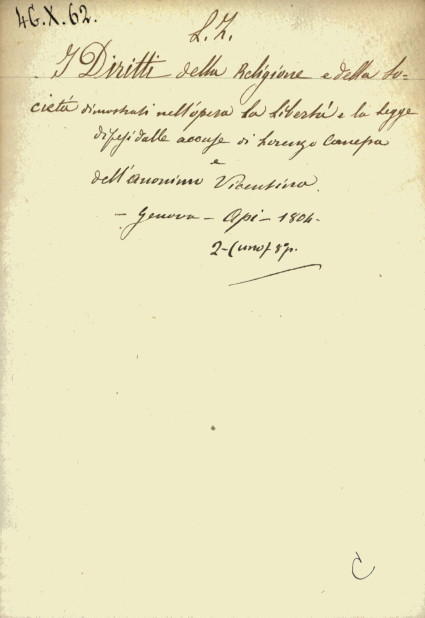 4G.X.62.
L. Z.
I Diritti della Religione e della So-
cietá dimostrati nell'opera La Libertá e la Legge
difesi dalle accuse di Lorenzo Canepa
e
dell'anonimo Vicentino.
— Genova — Api — 1804 —
2-(uno) 8p.
C